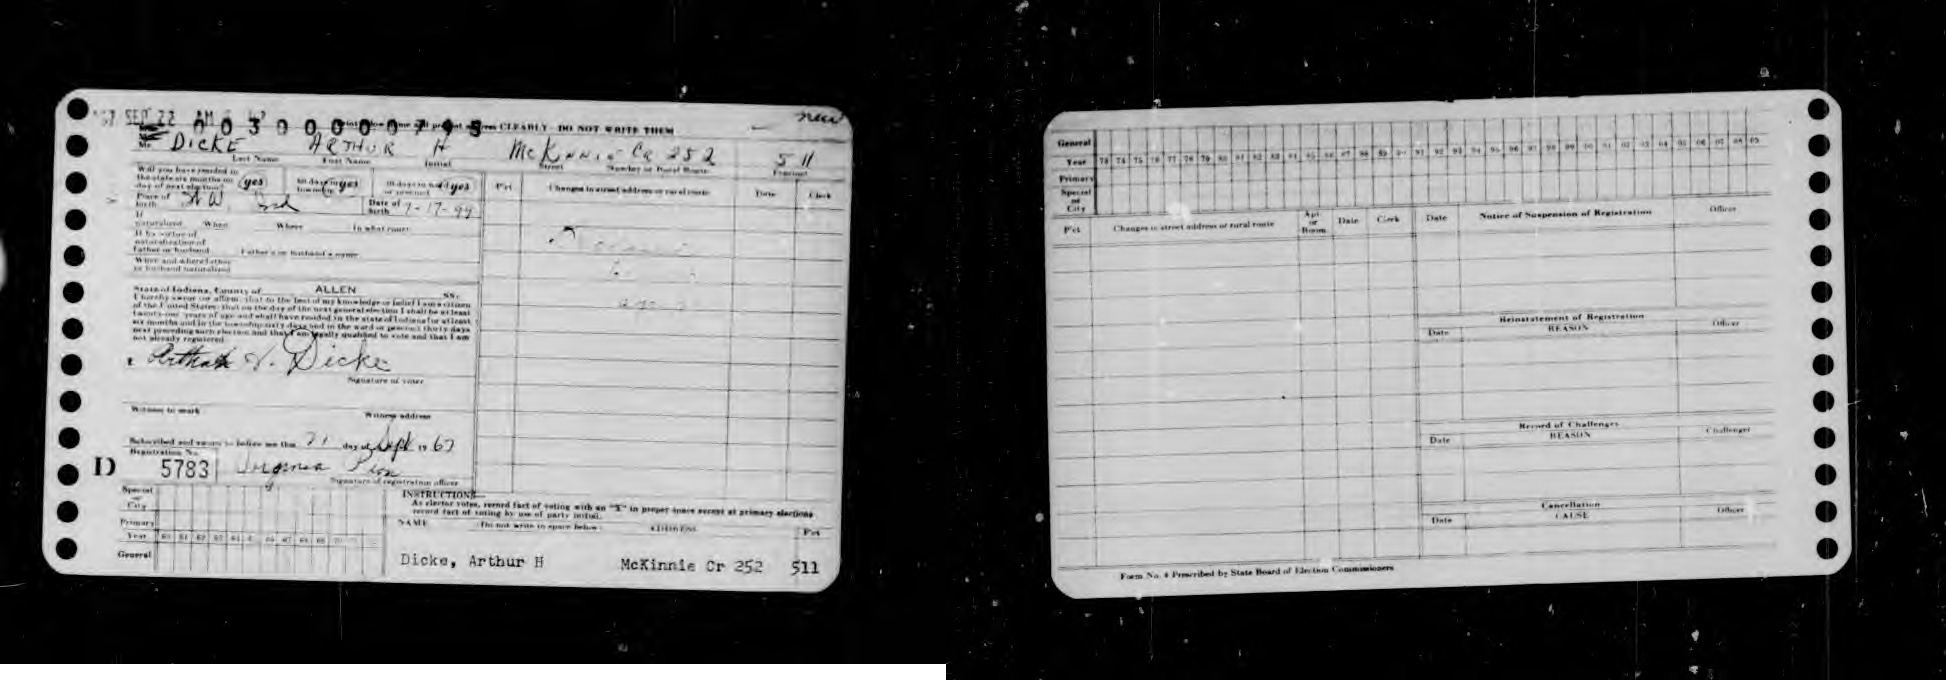 SEP 22 AM
00300000795 CLEARLY - DO NOT WRITE THEM
new
Mr. DICKE ARTHUR H McKinnie Cr 252 511
Last Name First Name Initial Street Number or Rural Route Precinct
Will you have resided in
the state six months on
day of next election? yes 60 days in township yes 30 days in ward or precinct yes
Pct Changes in street address or rural route Date Clerk
Place of birth Ind Date of birth
If naturalized When Where In what court
If by virtue of
naturalization of
father or husband Father's or husband's name
When and where father
or husband naturalized
State of Indiana, County of ALLEN SS:
I hereby swear (or affirm) that to the best of my knowledge or belief I am a citizen
of the United States; that on the day of the next general election I shall be at least
twenty-one years of age and shall have resided in the state of Indiana for at least
six months and in the township sixty days and in the ward or precinct thirty days
next preceding such election and that I am legally qualified to vote and that I am
not already registered.
Arthur H. Dicke
Signature of voter
Witness to mark Witness address
Subscribed and sworn to before me this 21 day of Sept 1967
Registration No.
D 5783 Virginia
Signature of registration officer
Special or City
Primary
Year 60 61 62 63 64 65 66 67 68 69 70
General
INSTRUCTIONS—
As elector votes, record fact of voting with an "X" in proper space except at primary elections
record fact of voting by use of party initial.
NAME (Do not write in space below) ADDRESS Pct
Dicke, Arthur H McKinnie Cr 252 511
General
Year 73 74 75 76 77 78 79 80 81 82 83 84 85 86 87 88 89 90 91 92 93 94 95 96 97 98 99 00 01 02 03 04 05 06 07 08 09
Primary
Special or City
Pct Changes in street address or rural route Apt or Room Date Clerk Date Notice of Suspension of Registration Officer
Reinstatement of Registration
Date REASON Officer
Record of Challenges
Date REASON Challenger
Cancellation
Date CAUSE Officer
Form No. 4 Prescribed by State Board of Election Commissioners